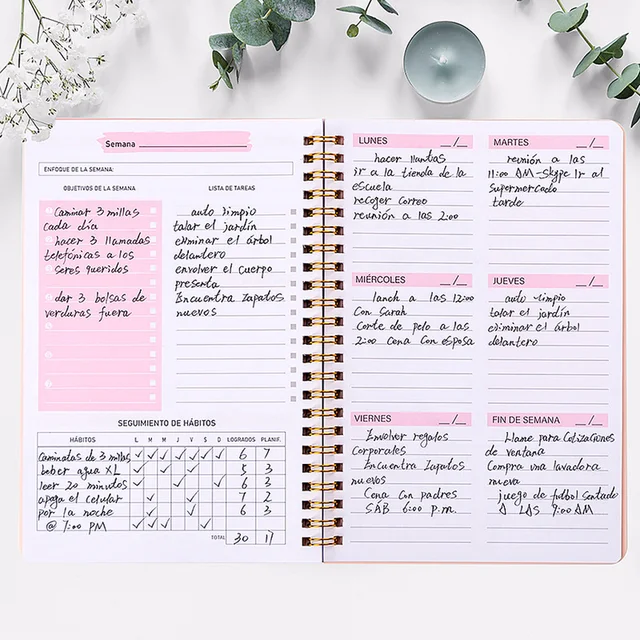 Semana
ENFOQUE DE LA SEMANA:
OBJETIVOS DE LA SEMANA
Caminar 3 millas
cada día
hacer 3 llamadas
telefónicas a los
seres queridos
dar 3 bolsas de
verduras fuera
LISTA DE TAREAS
auto limpio
talar el jardín
eliminar el árbol
delantero
envolver el cuerpo
presenta
Encuentra zapatos
nuevos
SEGUIMIENTO DE HÁBITOS
HÁBITOS L M M J V S D LOGRADOS PLANIF.
Caminatas de 3 millas ✓ ✓ ✓ ✓ ✓ ✓ ✓ 6 7
beber agua XL 5 3
leer 20 minutos 6 3
apaga el celular 7 2
por la noche 6 3
@ 7:00 PM
TOTAL 30 17
LUNES __/__
hacer llantas
ir a la tienda de la
escuela
recoger correo
reunión a las 2:00
MARTES __/__
reunión a las
11:00 AM-skype Ir al
supermercado
tarde
MIÉRCOLES __/__
lanch a las 12:00
Con Sarah
Corte de pelo a las
2:00 Cena Con esposa
JUEVES __/__
auto limpio
talar el jardín
eliminar el árbol
delantero
VIERNES __/__
Envolver regalos
Corporales
Encuentra zapatos
nuevos
Cena con padres
SAB 6:00 p.m.
FIN DE SEMANA __/__
Llame para Cotizaciones
de ventana
Compra una lavadora
nueva
juego de futbol sentado
A LAS 9:00 AM